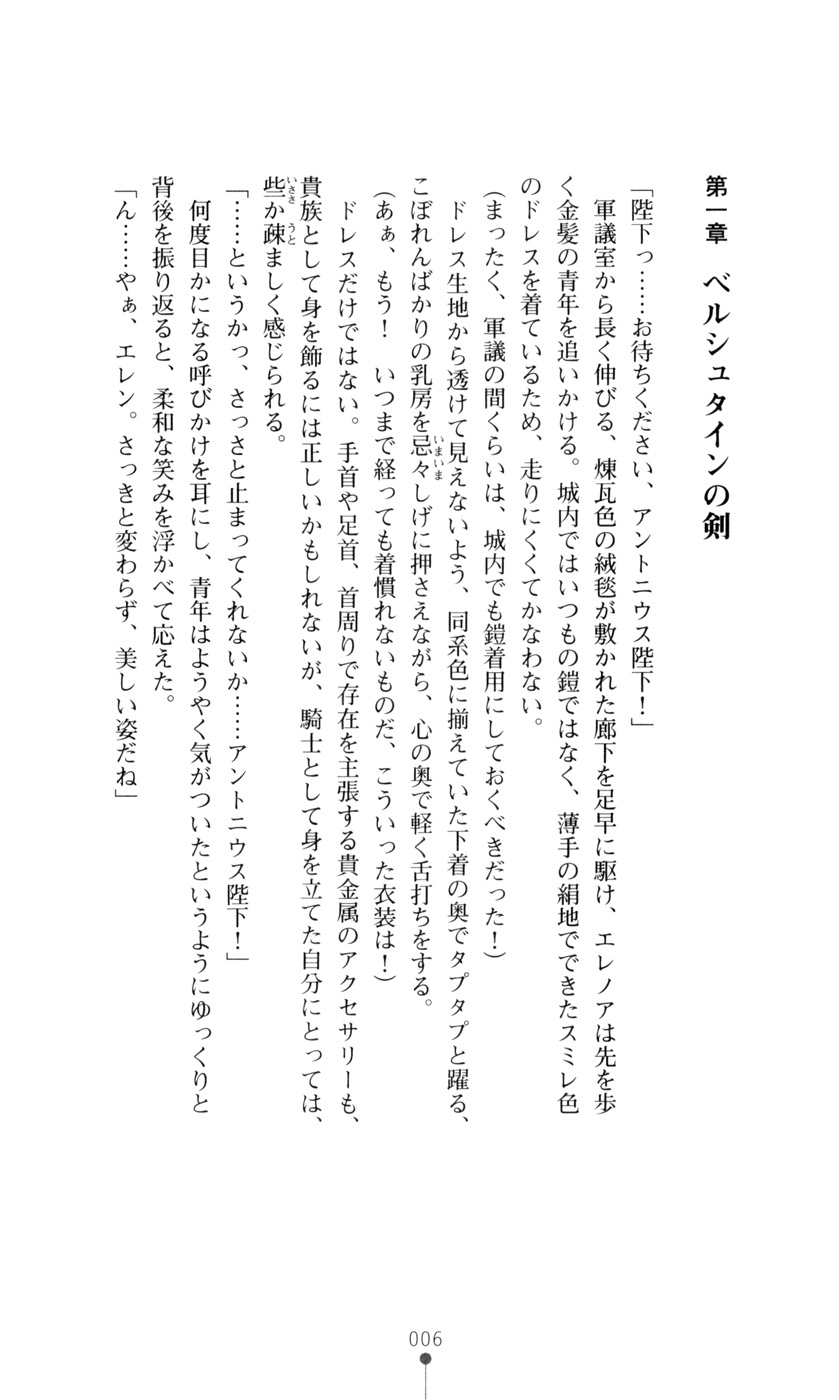 第一章　ベルシュタインの剣
「陛下っ……お待ちください、アントニウス陛下！」
　軍議室から長く伸びる、煉瓦色の絨毯が敷かれた廊下を足早に駆け、エレノアは先を歩
く金髪の青年を追いかける。城内ではいつもの鎧ではなく、薄手の絹地でできたスミレ色
のドレスを着ているため、走りにくくてかなわない。
（まったく、軍議の間くらいは、城内でも鎧着用にしておくべきだった！）
　ドレス生地から透けて見えないよう、同系色に揃えていた下着の奥でタプタプと躍る、
こぼれんばかりの乳房を忌々しげに押さえながら、心の奥で軽く舌打ちをする。
（あぁ、もう！　いつまで経っても着慣れないものだ、こういった衣装は！）
　ドレスだけではない。手首や足首、首周りで存在を主張する貴金属のアクセサリーも、
貴族として身を飾るには正しいかもしれないが、騎士として身を立てた自分にとっては、
些か疎ましく感じられる。
「……というかっ、さっさと止まってくれないか……アントニウス陛下！」
　何度目かになる呼びかけを耳にし、青年はようやく気がついたというようにゆっくりと
背後を振り返ると、柔和な笑みを浮かべて応えた。
「ん……やぁ、エレン。さっきと変わらず、美しい姿だね」
006